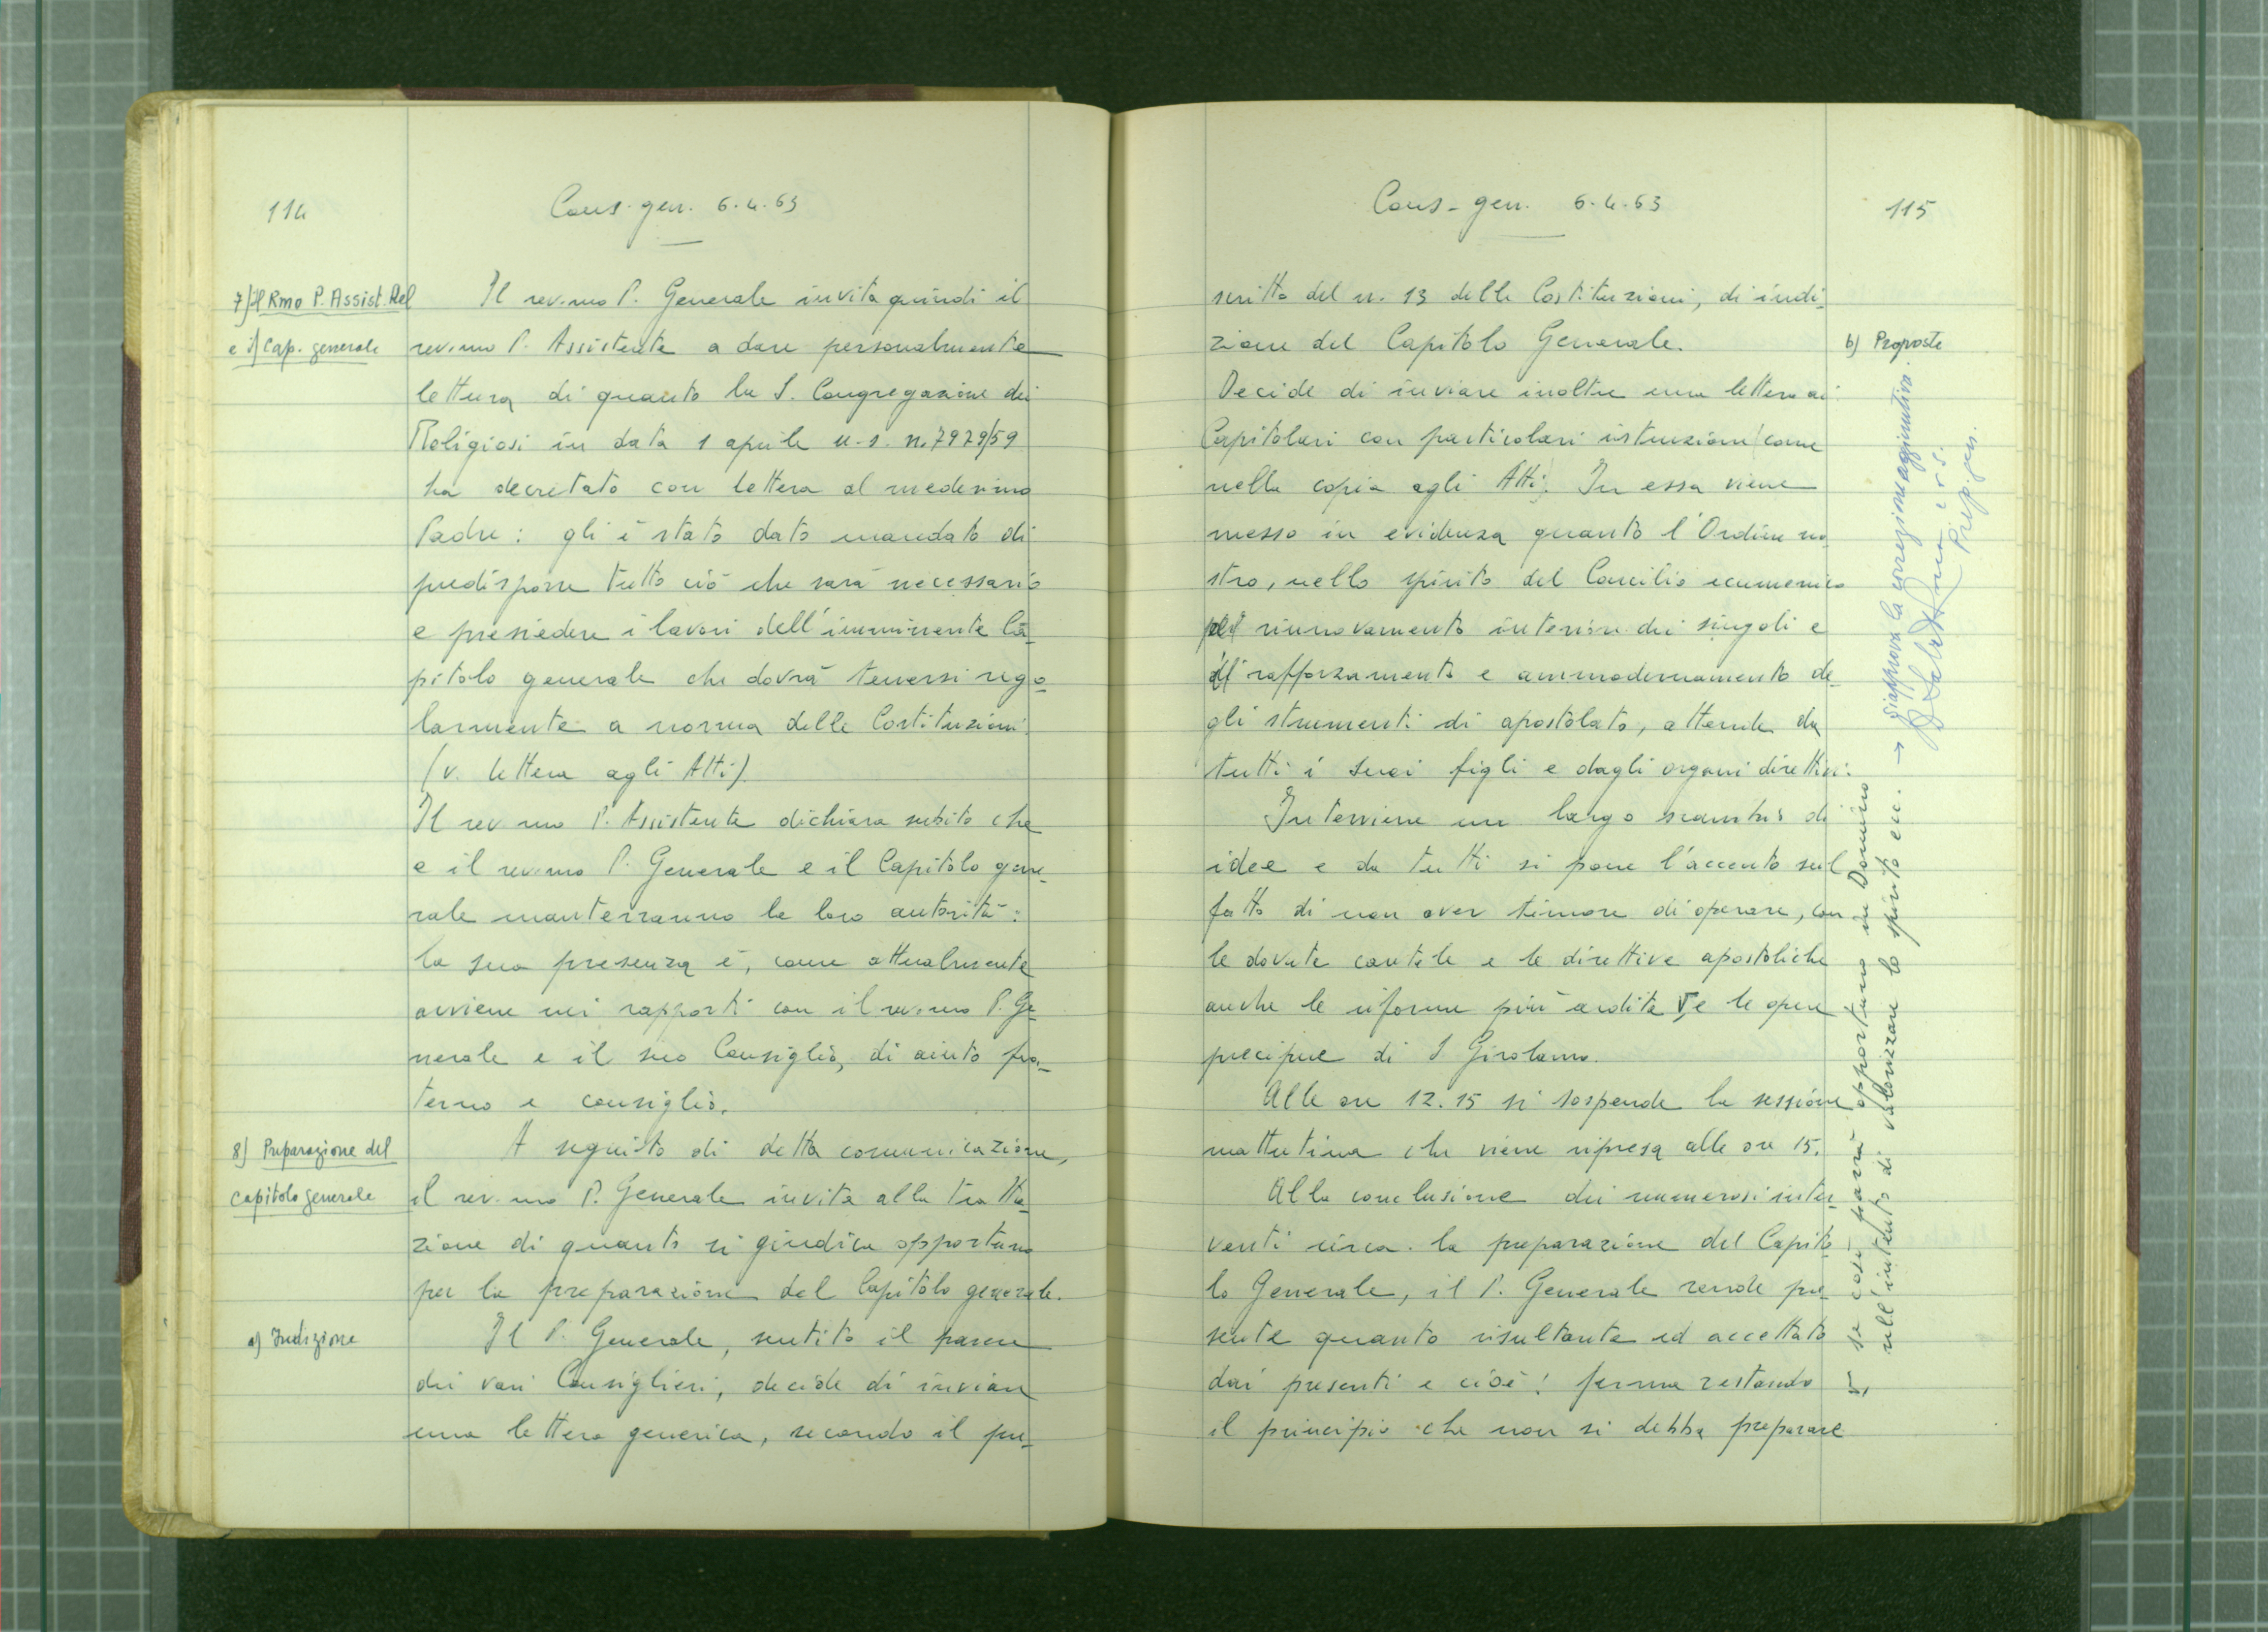 114
Cons. gen. 6.4.63
7) il Rmo P. Assist. Rel
e il Cap. generale
Il rev.mo P. Generale invita quindi il
rev.mo P. Assistente a dare personalmente
lettura di quanto la S. Congregazione dei
Religiosi in data 1 aprile u.s. n. 7979/59
ha decretato con lettera al medesimo
Padre: gli è stato dato mandato di
predisporre tutto ciò che sarà necessario
e presiedere i lavori dell'imminente Ca-
pitolo generale che dovrà tenersi rego-
larmente a norma delle Costituzioni.
(v. lettera agli Atti)
Il rev.mo P. Assistente dichiara subito che
e il rev.mo P. Generale e il Capitolo gene-
rale manterranno la loro autorità:
la sua presenza è, come attualmente
avviene nei rapporti con il rev.mo P. Ge-
nerale e il suo Consiglio, di aiuto fra-
terno e consiglio.
8) Preparazione del
capitolo generale
A seguito di detta comunicazione,
il rev.mo P. Generale invita alla tratta-
zione di quanto si giudica opportuno
per la preparazione del Capitolo generale.
a) Indizione
Il P. Generale, sentito il parere
dei vari Consiglieri, decide di inviare
una lettera generica, secondo il pre-
Cons-gen. 6.4.63
115
scritto del n. 13 delle Costituzioni, di indi-
zione del Capitolo Generale.
b) Proposte
Decide di inviare inoltre una lettera ai
Capitolari con particolari istruzioni (come
nella copia agli Atti). In essa viene
messo in evidenza quanto l'Ordine no-
stro, nello spirito del Concilio ecumenico
rinnovamento interiore dei singoli e
rafforzamento e ammodernamento de-
gli strumenti di apostolato, attende da
tutti i suoi figli e dagli organi direttivi.
Interviene un largo scambio di
idee e da tutti si pone l'accento sul
fatto di non aver timore di operare, con
le dovute cautele e le direttive apostoliche
anche le riforme più ardite e le opere
precipue di S. Girolamo.
Alle ore 12.15 si sospende la sessione
mattutina che viene ripresa alle ore 15.
Alla conclusione dei numerosi inter-
venti circa la preparazione del Capito-
lo Generale, il P. Generale rende pre-
sente quanto risultante ed accettato
dai presenti e cioè: ferma restando
il principio che non si debba preparare
se così parrà opportuno in Domino
nell'intento di valorizzare lo spirito ecc. →
Si approva la correzione aggiuntiva.
c.r.s.
Prep. gen.